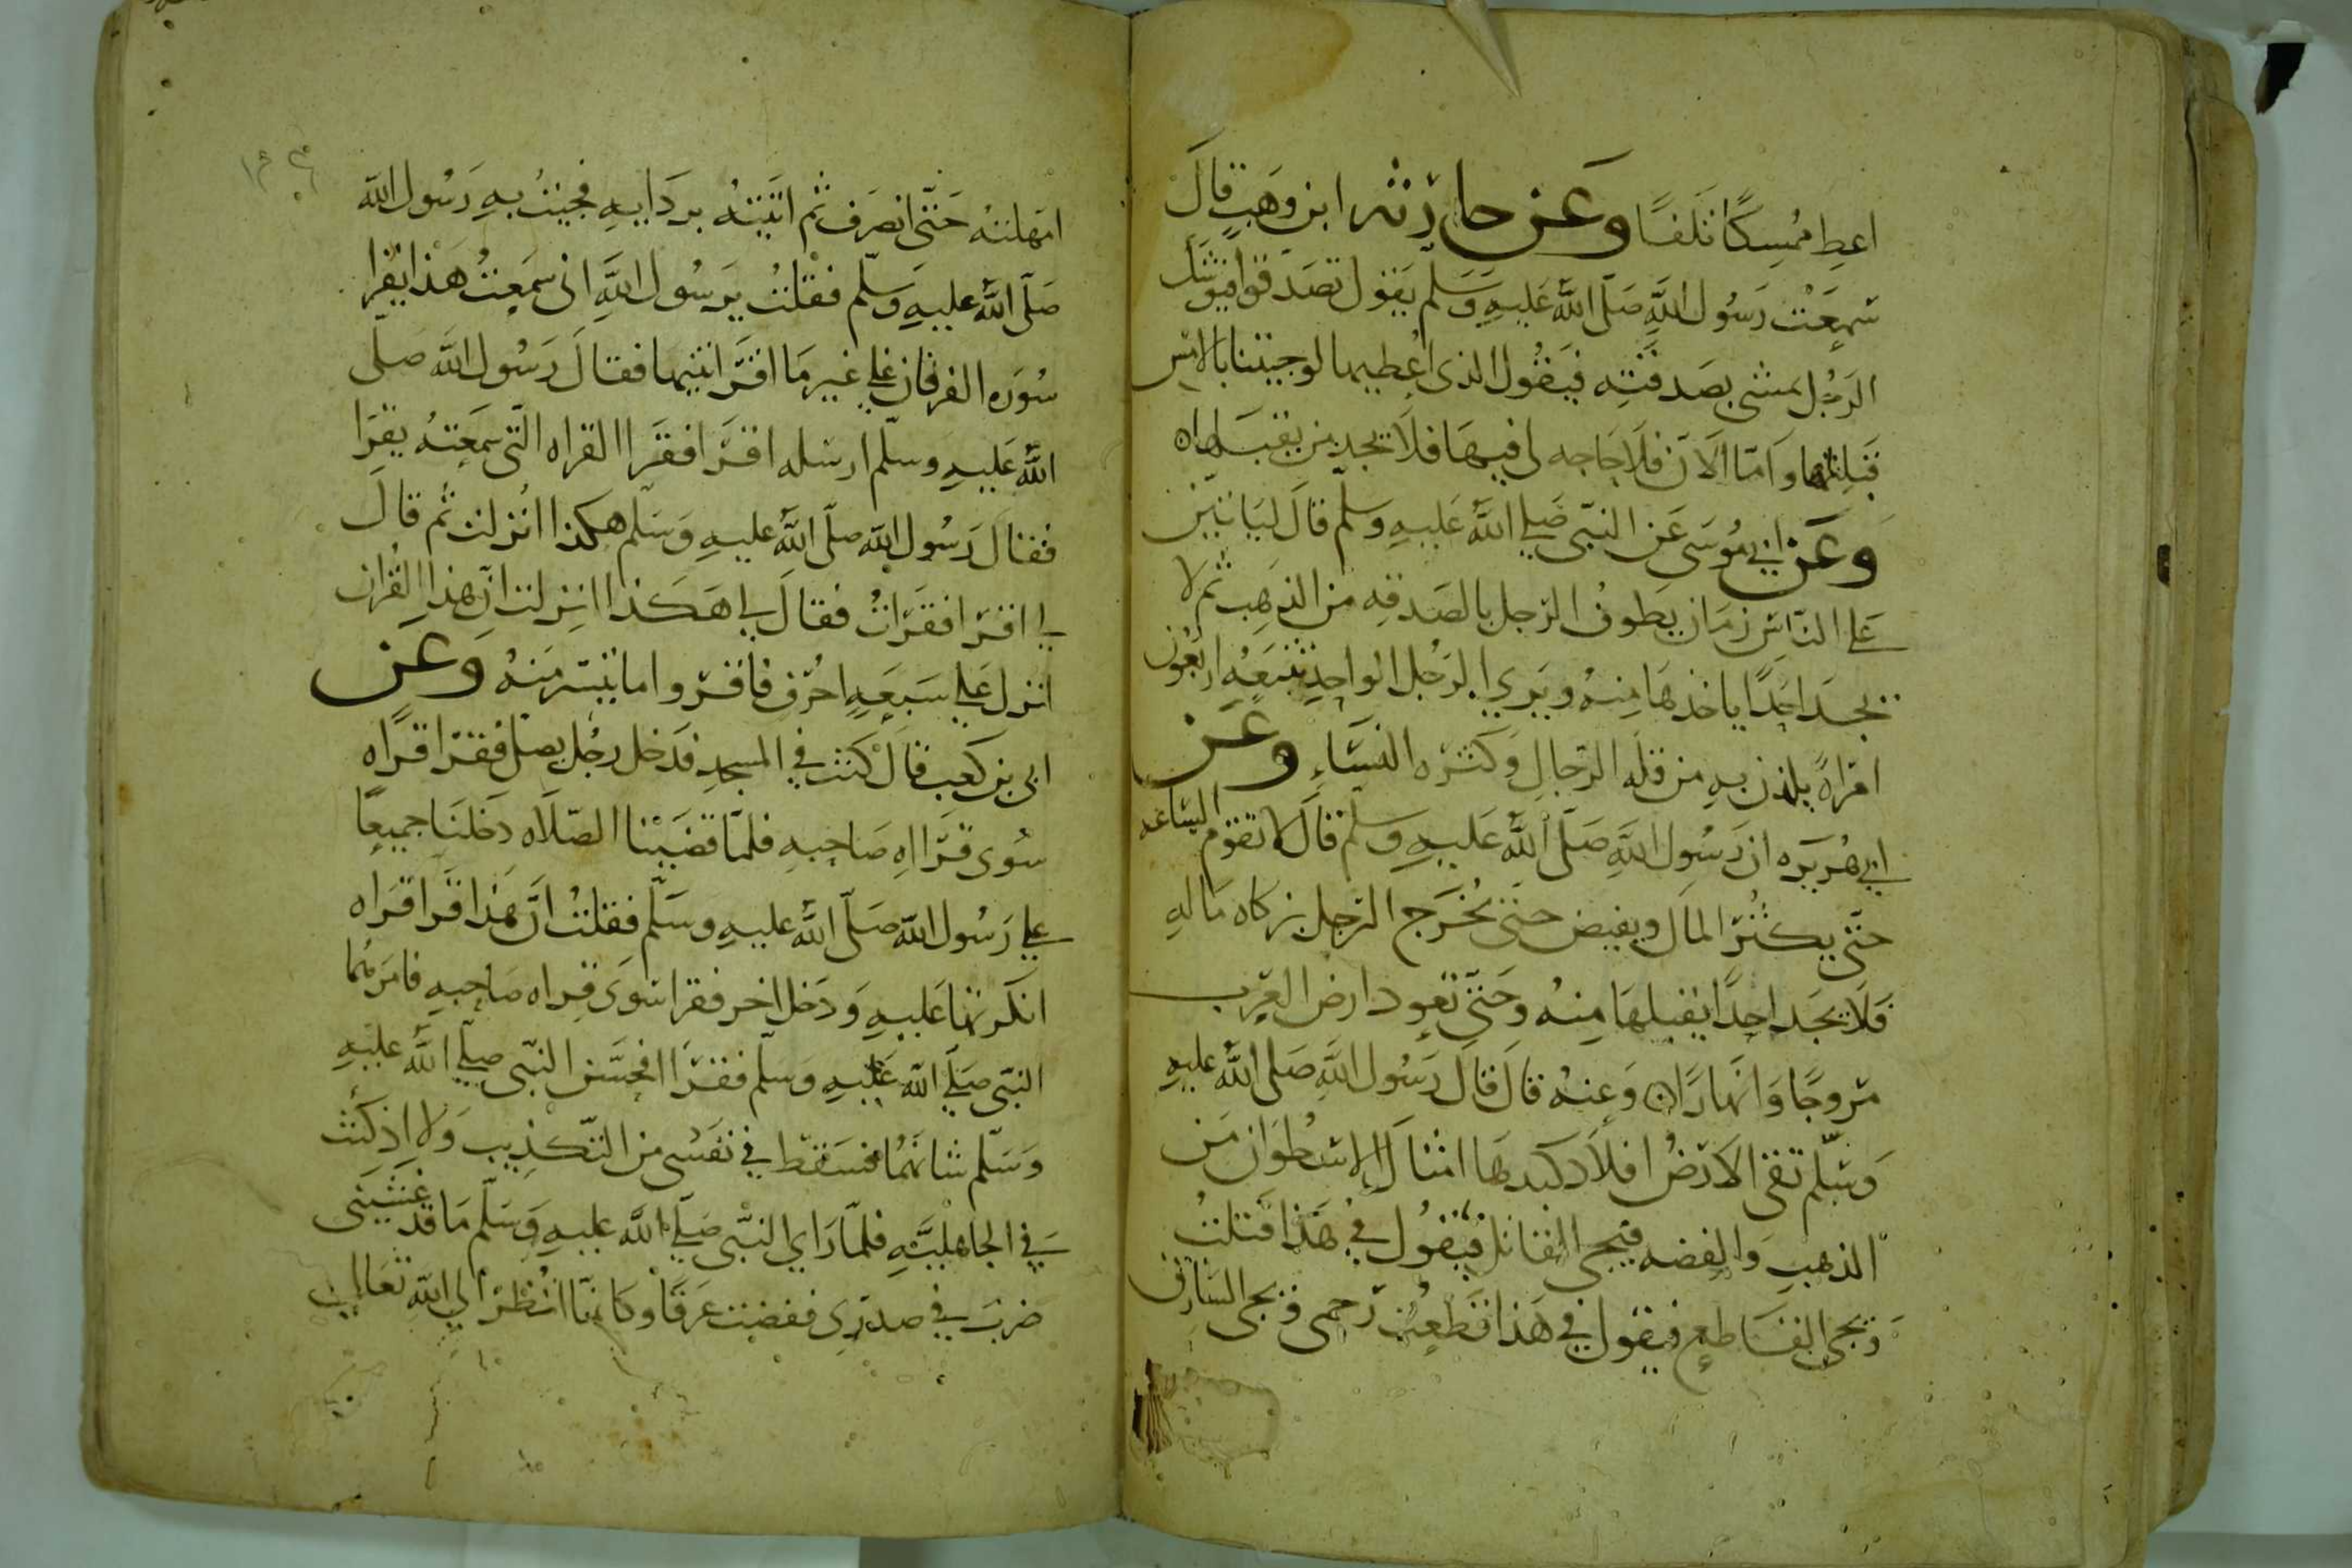 اعط ممسكا تلفا وعن حارثه ابن وهب قال
سمعت رسول الله صلى الله عليه وسلم يقول تصدقوا فيوشك
الرجل يمشي بصدقته فيقول الذي اعطيها لو جيتنا بالامس
قبلتها واما الان فلا حاجه لي فيها فلا يجد من يقبلها
وعن ابي موسى عن النبي صلى الله عليه وسلم قال لياتين
على الناس زمان يطوف الرجل بالصدقه من الذهب ثم لا
يجد احدا ياخذها منه ويري الرجل الواحد تتبعه اربعون
امراة يلذن به من قله الرجال وكثره النساء وعن
ابي هريره ان رسول الله صلى الله عليه وسلم قال لا تقوم الساعه
حتى يكثر المال ويفيض حتى يخرج الرجل بزكاه ماله
فلا يجد احدا يقبلها منه وحتى تعود ارض العرب
مروجا وانهارا وعنه قال قال رسول الله صلى الله عليه
وسلم تقي الارض افلاد كبدها امثال الاسطوان من
الذهب والفضه فيجي القاتل فيقول في هذا قتلت
ويجي القاطع فيقول في هذا قطعت رحمي ويجي السارق
امهلته حتى انصرف ثم اتيته بردايه فجيت به رسول الله
صلى الله عليه وسلم فقلت يرسول الله اني سمعت هذا يقرا
سوره الفرقان على غير ما اقراتنيها فقال رسول الله صلى
الله عليه وسلم ارسله اقرا فقرا القراه التي سمعته يقرا
فقال رسول الله صلى الله عليه وسلم هكذا انزلت ثم قال
لي اقرا فقرات فقال لي هكذا انزلت ان هذا القران
انزل على سبعه احرف فاقروا ما تيسر منه وعن
ابي بن كعب قال كنت في المسجد فدخل رجل يصلي فقرا قراه
سوى قرااه صاحبه فلما قضينا الصلاه دخلنا جميعا
على رسول الله صلى الله عليه وسلم فقلت ان هذا قرا قراه
انكرتها عليه ودخل اخر فقرا سوى قراه صاحبه فامرهما
النبي صلى الله عليه وسلم فقرا فحسن النبي صلى الله عليه
وسلم شانهما فسقط في نفسي من التكذيب ولا اذ كنت
في الجاهلية فلما راي النبي صلى الله عليه وسلم ما قد غشيني
ضرب في صدري ففضت عرقا وكانما انظر الى الله تعالى